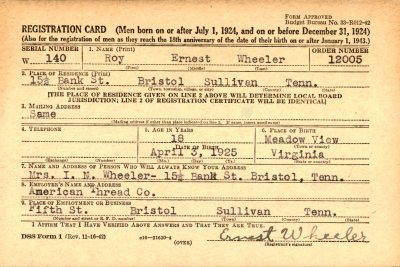 FORM APPROVED
Budget Bureau No. 33-R012-42
REGISTRATION CARD (Men born on or after July 1, 1924, and on or before December 31, 1924)
(Also for the registration of men as they reach the 18th anniversary of the date of their birth on or after January 1, 1943.)
SERIAL NUMBER 1. NAME (Print) ORDER NUMBER
W 140 Roy Ernest Wheeler 12005
(First) (Middle) (Last)
2. PLACE OF RESIDENCE (Print)
15½ Bank St. Bristol Sullivan Tenn.
(Number and street) (Town, township, village, or city) (County) (State)
[THE PLACE OF RESIDENCE GIVEN ON LINE 2 ABOVE WILL DETERMINE LOCAL BOARD
JURISDICTION; LINE 2 OF REGISTRATION CERTIFICATE WILL BE IDENTICAL]
3. MAILING ADDRESS
Same
(Mailing address if other than place indicated on line 2. If same, insert word same)
4. TELEPHONE 5. AGE IN YEARS 6. PLACE OF BIRTH
18 Meadow View
DATE OF BIRTH (Town or county)
April 3, 1925 Virginia
(Exchange) (Number) (Mo.) (Day) (Yr.) (State or country)
7. NAME AND ADDRESS OF PERSON WHO WILL ALWAYS KNOW YOUR ADDRESS
Mrs. I. N. Wheeler- 15½ Bank St. Bristol, Tenn.
8. EMPLOYER'S NAME AND ADDRESS
American Thread Co.
9. PLACE OF EMPLOYMENT OR BUSINESS
Fifth St. Bristol Sullivan Tenn.
(Number and street or R. F. D. number) (Town) (County) (State)
I AFFIRM THAT I HAVE VERIFIED ABOVE ANSWERS AND THAT THEY ARE TRUE.
DSS Form 1 (Rev. 11-16-42) (OVER) Ernest Wheeler
(Registrant's signature)